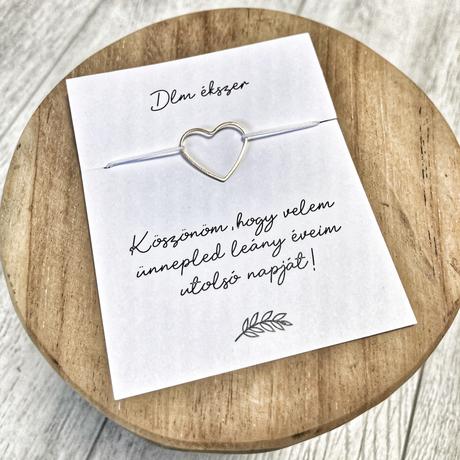 Dlm ékszer
Köszönöm, hogy velem
ünnepled leány éveim
utolsó napját!